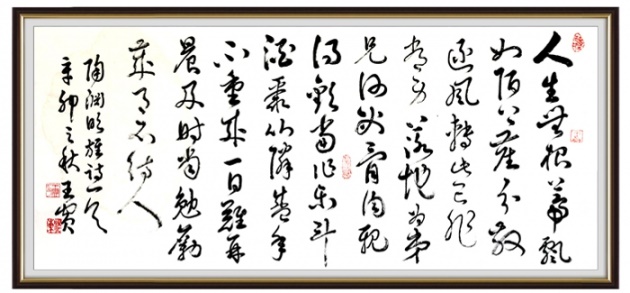 人生無根蒂飄
如陌上塵分散
逐風轉此已非
常身落地為弟
兄何必骨肉親
得歡當作樂斗
酒聚比鄰盛年
不重來一日難再
晨及时當勉勵
歲月不待人
陶淵明雜詩一首
辛卯之秋王